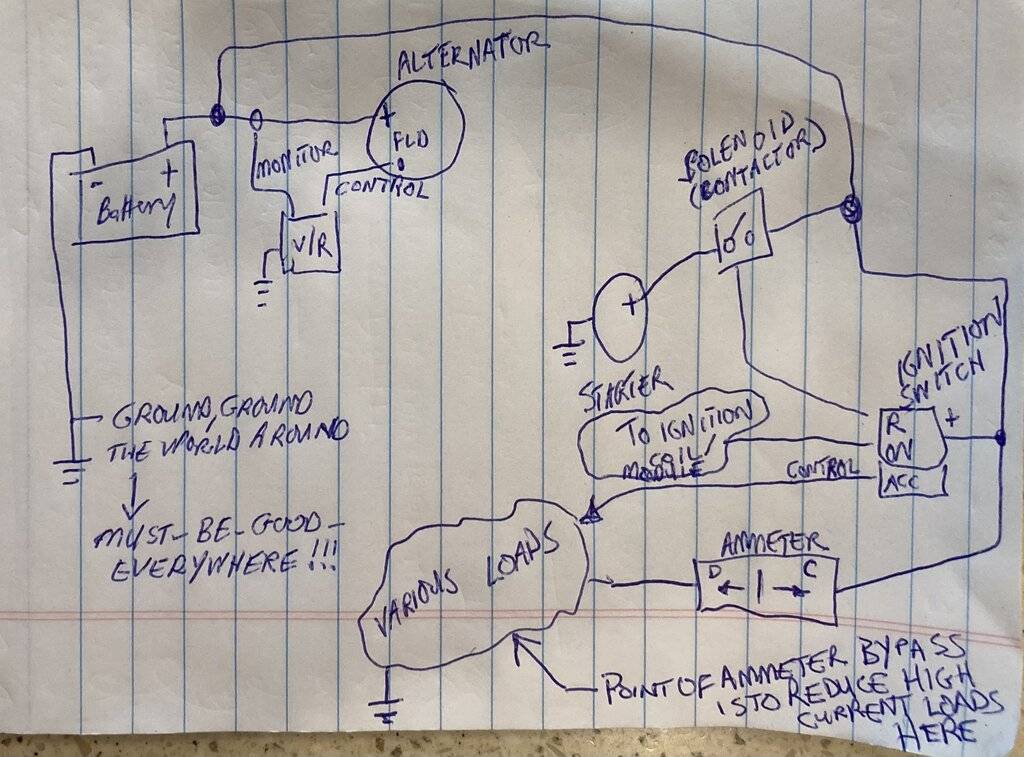 ALTERNATOR
+
FLD
MONITOR
CONTROL
- +
Battery
V/R
SOLENOID
(CONTACTOR)
+
STARTER
IGNITION
SWITCH
R
ON
+
ACC
TO IGNITION
COIL/
MODULE
CONTROL
GROUND, GROUND
THE WORLD AROUND
MUST-BE-GOOD-
EVERYWHERE!!!
VARIOUS LOADS
AMMETER
D C
POINT OF AMMETER BYPASS
IS TO REDUCE HIGH
CURRENT LOADS
HERE